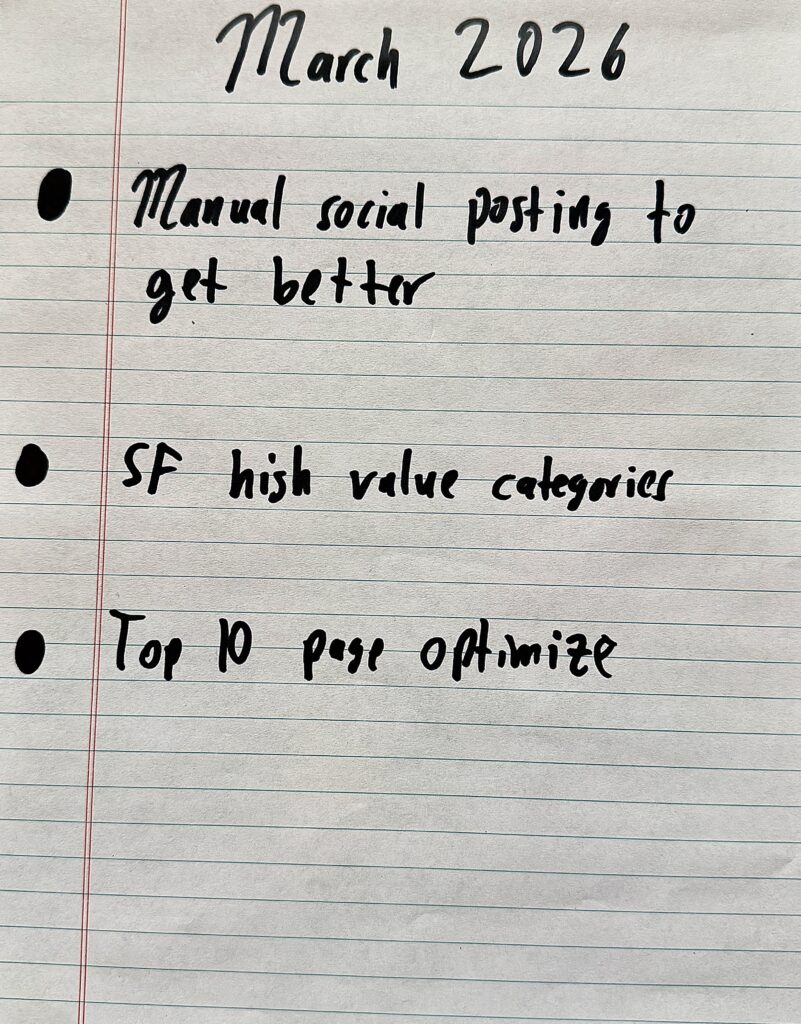 March 2026
• Manual social posting to
get better
• SF high value categories
• Top 10 page optimize